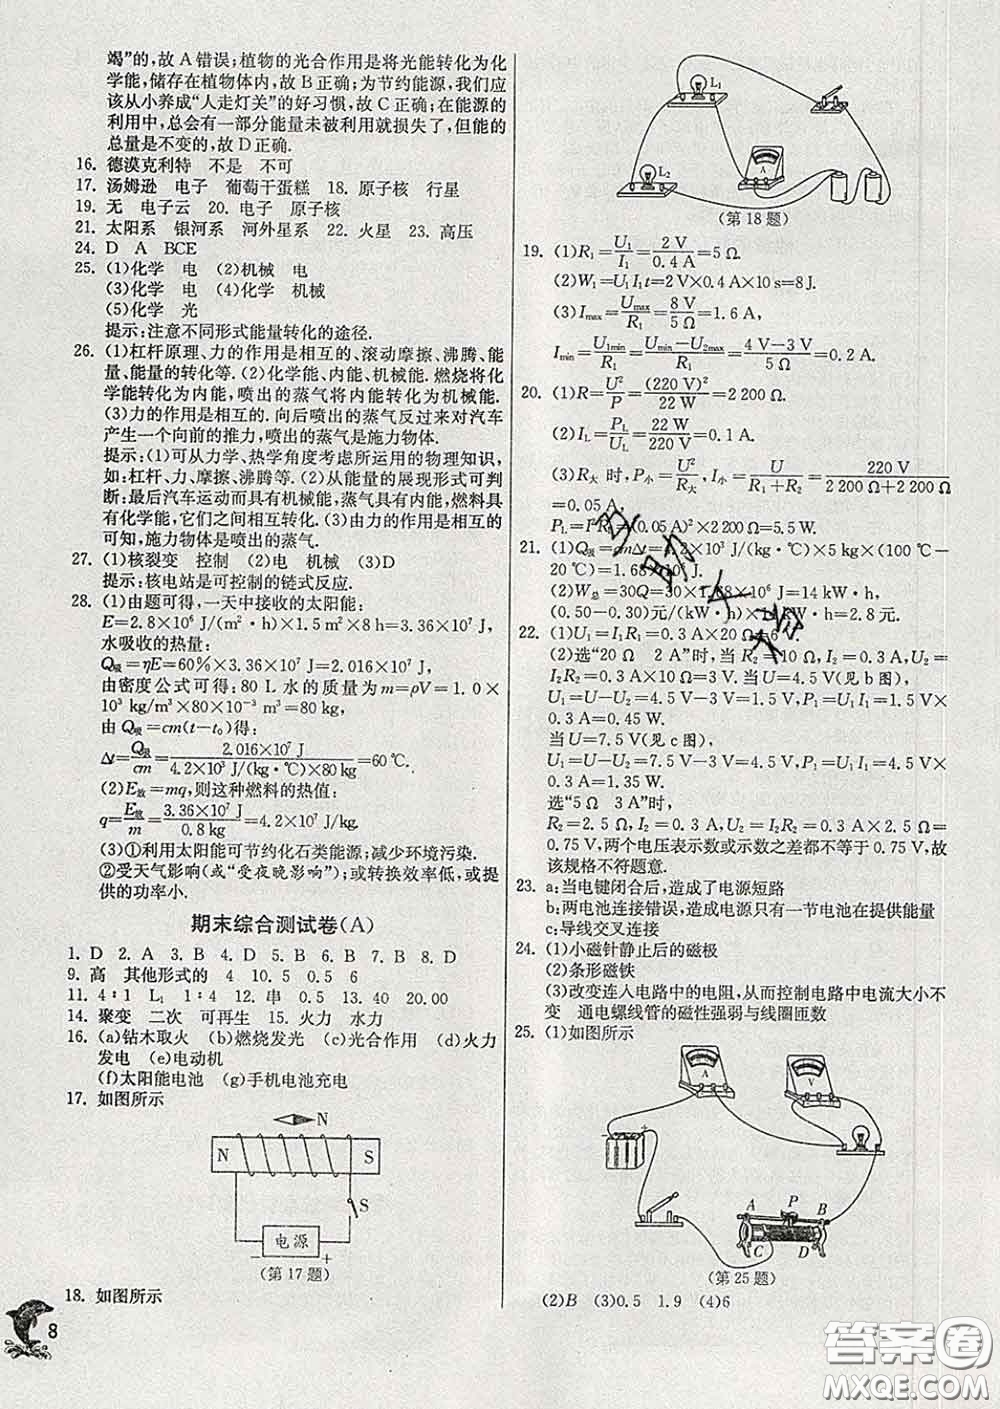 竭”的,故 A 错误;植物的光合作用是将光能转化为化
学能,储存在植物体内,故 B 正确;为节约能源,我们应
该从小养成“人走灯关”的好习惯,故 C 正确;在能源的
利用中,总会有一部分能量未被利用就损失了,但能的
总量是不变的,故 D 正确.
16. 德谟克利特 不是 不可
17. 汤姆逊 电子 葡萄干蛋糕 18. 原子核 行星
19. 无 电子云 20. 电子 原子核
21. 太阳系 银河系 河外星系 22. 火星 23. 高压
24. D A BCE
25. (1)化学 电 (2)机械 电
(3)化学 电 (4)化学 机械
(5)化学 光
提示:注意不同形式能量转化的途径.
26. (1)杠杆原理、力的作用是相互的、滚动摩擦、沸腾、能
量、能量的转化等. (2)化学能、内能、机械能. 燃烧将化
学能转化为内能,喷出的蒸气将内能转化为机械能.
(3)力的作用是相互的. 向后喷出的蒸气反过来对汽车
产生一个向前的推力,喷出的蒸气是施力物体.
提示:(1)可从力学、热学角度考虑所运用的物理知识,
如:杠杆、力、摩擦、沸腾等. (2)从能量的展现形式可判
断:最后汽车运动而具有机械能,蒸气具有内能,燃料具
有化学能,它们之间相互转化. (3)由力的作用是相互的
可知,施力物体是喷出的蒸气.
27. (1)核裂变 控制 (2)电 机械 (3)D
提示:核电站是可控制的链式反应.
28. (1)由题可得,一天中接收的太阳能:
E=2.8×10⁶ J/(m²·h)×1.5 m²×8 h=3.36×10⁷ J,
水吸收的热量:
Q吸=ηE=60%×3.36×10⁷ J=2.016×10⁷ J,
由密度公式可得:80 L 水的质量为m=ρV=1.0×
10³ kg/m³×80×10⁻³ m³=80 kg,
由 Q吸=cm(t-t₀)得:
Δt=Q吸/cm=2.016×10⁷ J/4.2×10³ J/(kg·℃)×80 kg=60 ℃.
(2)E放=mq,则这种燃料的热值:
q=E放/m=3.36×10⁷ J/0.8 kg=4.2×10⁷ J/kg.
(3)①利用太阳能可节约化石类能源;减少环境污染.
②受天气影响(或“受夜晚影响”);或转换效率低,或提
供的功率小.
期末综合测试卷(A)
1. D 2. A 3. B 4. D 5. B 6. B 7. B 8. D
9. 高 其他形式的 4 10. 5 0.5 6
11. 4∶1 L₁ 1∶4 12. 串 0.5 13. 40 20.00
14. 聚变 二次 可再生 15. 火力 水力
16. (a)钻木取火 (b)燃烧发光 (c)光合作用 (d)火力
发电 (e)电动机
(f)太阳能电池 (g)手机电池充电
17. 如图所示
N
N S
S
电源
- +
(第 17 题)
18. 如图所示
8
L₁
L₂
A
(第 18 题)
19. (1)R₁=U₁/I₁=2 V/0.4 A=5 Ω.
(2)W₁=U₁I₁t=2 V×0.4 A×10 s=8 J.
(3)Imax=Umax/R₁=8 V/5 Ω=1.6 A,
Imin=U1min/R₁=(Umin-U2max)/R₁=(4 V-3 V)/5 Ω=0.2 A.
20. (1)R=U²/P=(220 V)²/22 W=2 200 Ω.
(2)IL=PL/UL=22 W/220 V=0.1 A.
(3)R大 时,P小=U²/R大,I小=U/(R₁+R₂)=220 V/(2 200 Ω+2 200 Ω)
=0.05 A,
PL=I²RL=(0.05 A)²×2 200 Ω=5.5 W.
21. (1)Q吸=cmΔt=4.2×10³ J/(kg·℃)×5 kg×(100 ℃-
20 ℃)=1.68×10⁶ J.
(2)W总=30Q=30×1.68×10⁶ J=14 kW·h,
(0.50-0.30)元/(kW·h)×14 kW·h=2.8 元.
22. (1)U₁=I₁R₁=0.3 A×20 Ω=6 V.
(2)选“20 Ω 2 A”时,当 R₂=10 Ω,I₂=0.3 A,U₂=
I₂R₂=0.3 A×10 Ω=3 V. 当 U=4.5 V(见 b 图),
U₁=U-U₂=4.5 V-3 V=1.5 V,P₁=U₁I₁=1.5 V×
0.3 A=0.45 W.
当 U=7.5 V(见 c 图),
U₁=U-U₂=7.5 V-3 V=4.5 V,P₁=U₁I₁=4.5 V×
0.3 A=1.35 W.
选“5 Ω 3 A”时,
R₂=2.5 Ω,I₂=0.3 A,U₂=I₂R₂=0.3 A×2.5 Ω=
0.75 V,两个电压表示数或示数之差都不等于 0.75 V,故
该规格不符题意.
23. a:当电键闭合后,造成了电源短路
b:两电池连接错误,造成电源只有一节电池在提供能量
c:导线交叉连接
24. (1)小磁针静止后的磁极
(2)条形磁铁
(3)改变连入电路中的电阻,从而控制电路中电流大小不
变 通电螺线管的磁性强弱与线圈匝数
25. (1)如图所示
A
V
- +
A P B
C D
(第 25 题)
(2)B (3)0.5 1.9 (4)6
答案圈
MXQE.COM